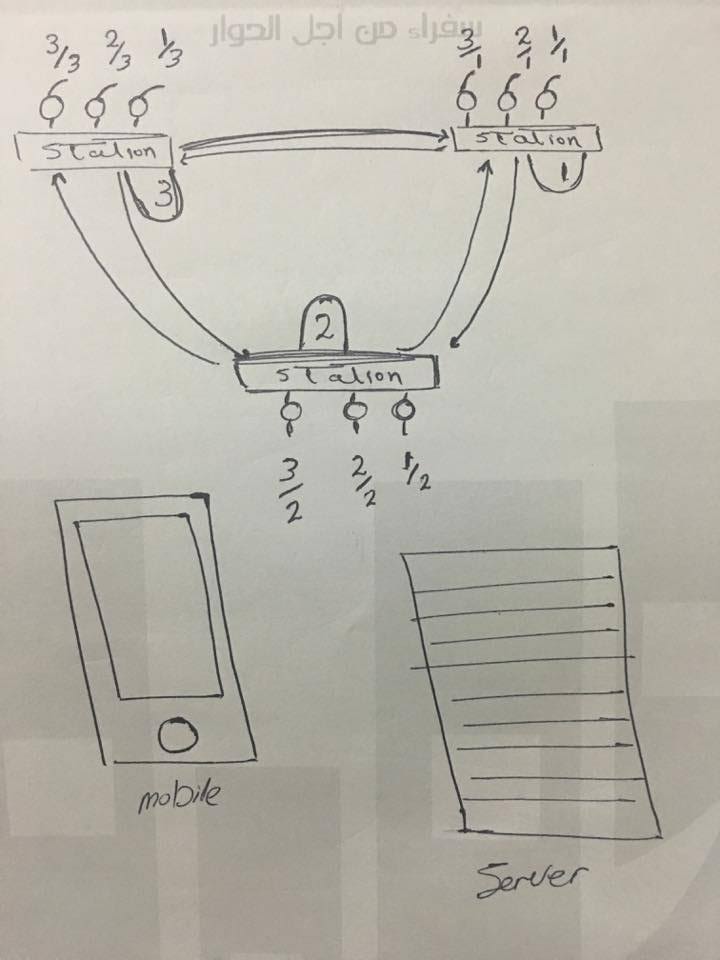 سفراء من أجل الحوار
3/3 2/3 1/3
3/1 2/1 1/1
Station
Station
3
1
2
Station
3/2 2/2 1/2
mobile
Server